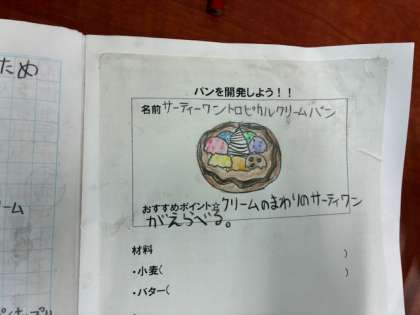 ため
ーム
パンを開発しよう！！
名前 サーティーワントロピカルクリームパン
おすすめポイント☆クリームのまわりのサーティワン
がえらべる。
材料
）
・小麦（
）
・バター（